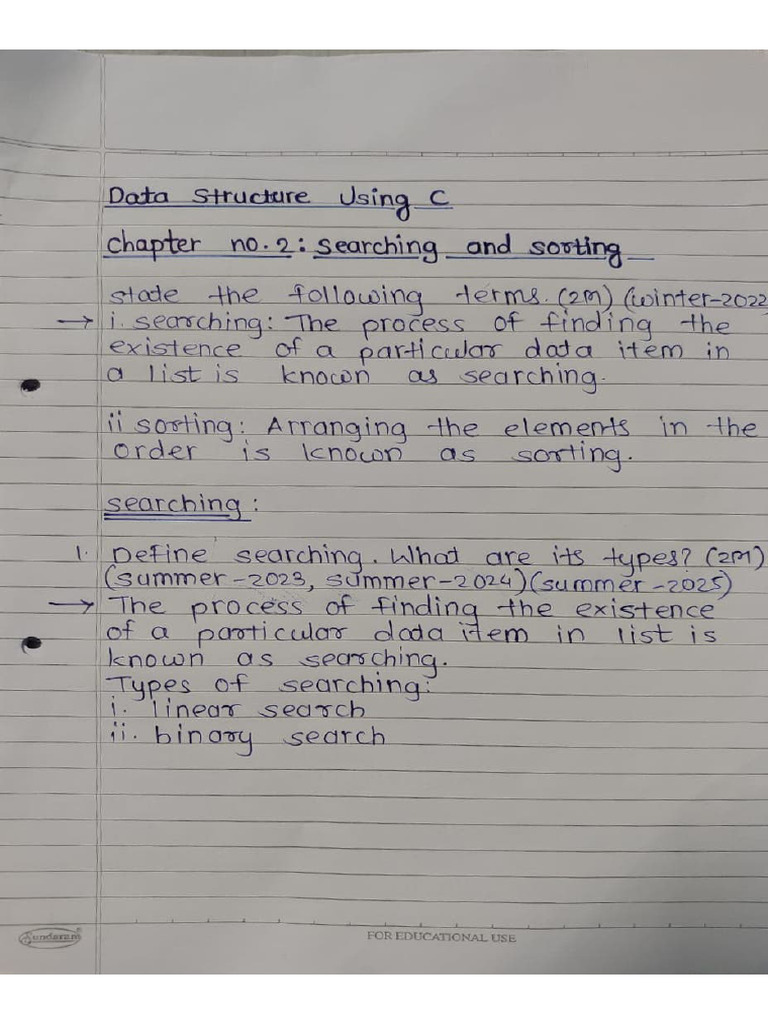 Data Structure Using C
chapter no.2: searching and sorting
state the following terms. (2M) (winter-2022
→ i. searching: The process of finding the
existence of a particular data item in
a list is known as searching.
ii sorting: Arranging the elements in the
order is known as sorting.
searching:
1. Define searching. What are its types? (2M)
(summer-2023, summer-2024)(summer-2025)
→ The process of finding the existence
of a particular data item in list is
known as searching.
Types of searching:
i. linear search
ii. binary search
Sundaram
FOR EDUCATIONAL USE